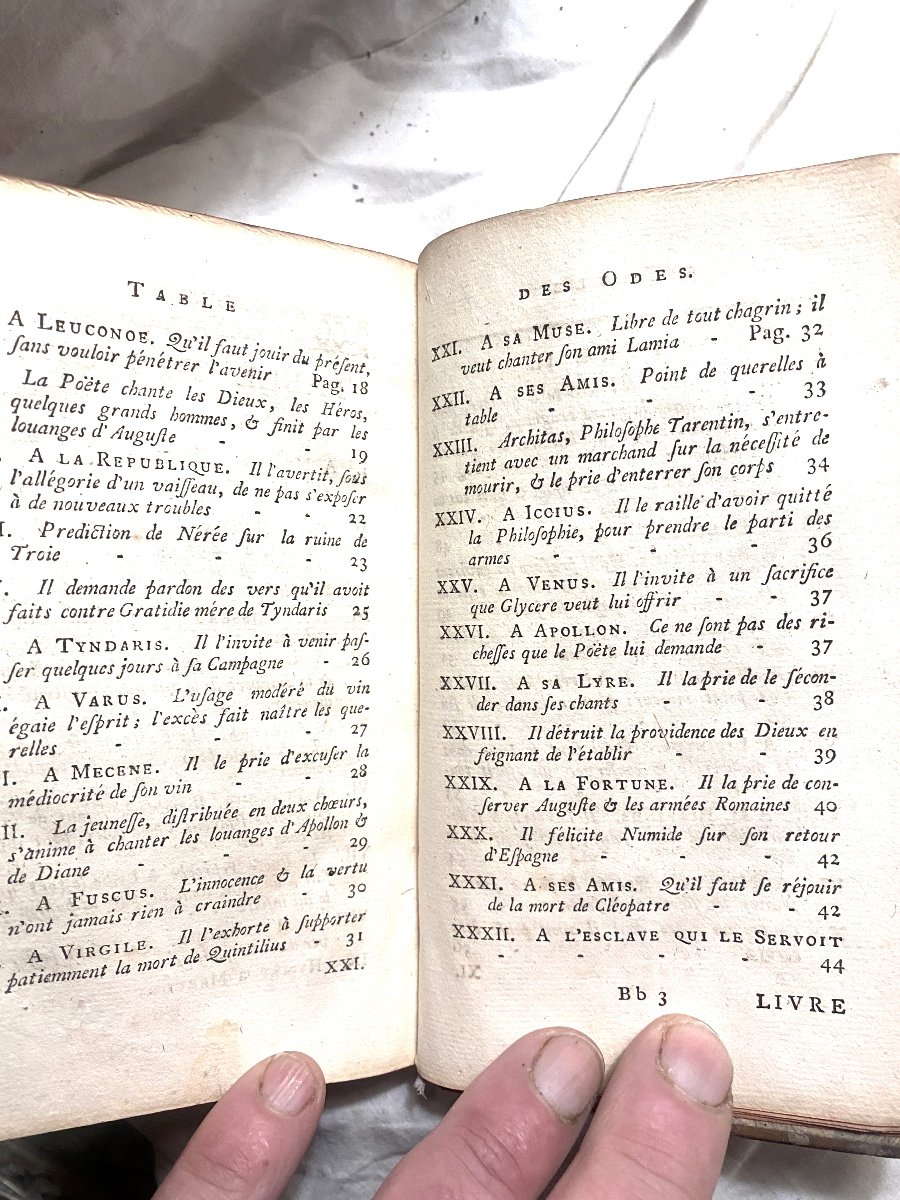 TABLE
A LEUCONOE. Qu'il faut jouir du préſent,
ſans vouloir pénétrer l'avenir Pag. 18
La Poëte chante les Dieux, les Héros,
quelques grands hommes, & finit par les
louanges d'Auguſte - - 19
A LA REPUBLIQUE. Il l'avertit, ſous
l'allégorie d'un vaiſſeau, de ne pas s'expoſer
à de nouveaux troubles - - 22
I. Prediction de Nérée ſur la ruine de
Troie - - - 23
. Il demande pardon des vers qu'il avoit
faits contre Gratidie mère de Tyndaris 25
A TYNDARIS. Il l'invite à venir paſ-
ſer quelques jours à ſa Campagne - 26
. A VARUS. L'uſage modéré du vin
égaie l'eſprit; l'excès fait naître les que-
relles - - - 27
I. A MECENE. Il le prie d'excuſer la
médiocrité de ſon vin - - 28
II. La jeuneſſe, diſtribuée en deux chœurs,
s'anime à chanter les louanges d'Apollon &
de Diane - - - 29
. A FUSCUS. L'innocence & la vertu
n'ont jamais rien à craindre - 30
A VIRGILE. Il l'exhorte à ſupporter
patiemment la mort de Quintilius - 31
XXI.
DES ODES.
XXI. A SA MUSE. Libre de tout chagrin; il
veut chanter ſon ami Lamia - Pag. 32
XXII. A SES AMIS. Point de querelles à
table - - - 33
XXIII. Architas, Philoſophe Tarentin, s'entre-
tient avec un marchand ſur la néceſſité de
mourir, & le prie d'enterrer ſon corps 34
XXIV. A ICCIUS. Il le raille d'avoir quitté
la Philoſophie, pour prendre le parti des
armes - - - 36
XXV. A VENUS. Il l'invite à un ſacrifice
que Glycere veut lui offrir - 37
XXVI. A APOLLON. Ce ne ſont pas des ri-
cheſſes que le Poëte lui demande - 37
XXVII. A SA LYRE. Il la prie de le ſécon-
der dans ſes chants - - 38
XXVIII. Il détruit la providence des Dieux en
feignant de l'établir - - 39
XXIX. A LA FORTUNE. Il la prie de con-
ſerver Auguſte & les armées Romaines 40
XXX. Il félicite Numide ſur ſon retour
d'Eſpagne - - - 42
XXXI. A SES AMIS. Qu'il faut ſe réjouir
de la mort de Cléopatre - - 42
XXXII. A L'ESCLAVE QUI LE SERVOIT
- - - - 44
Bb 3 LIVRE